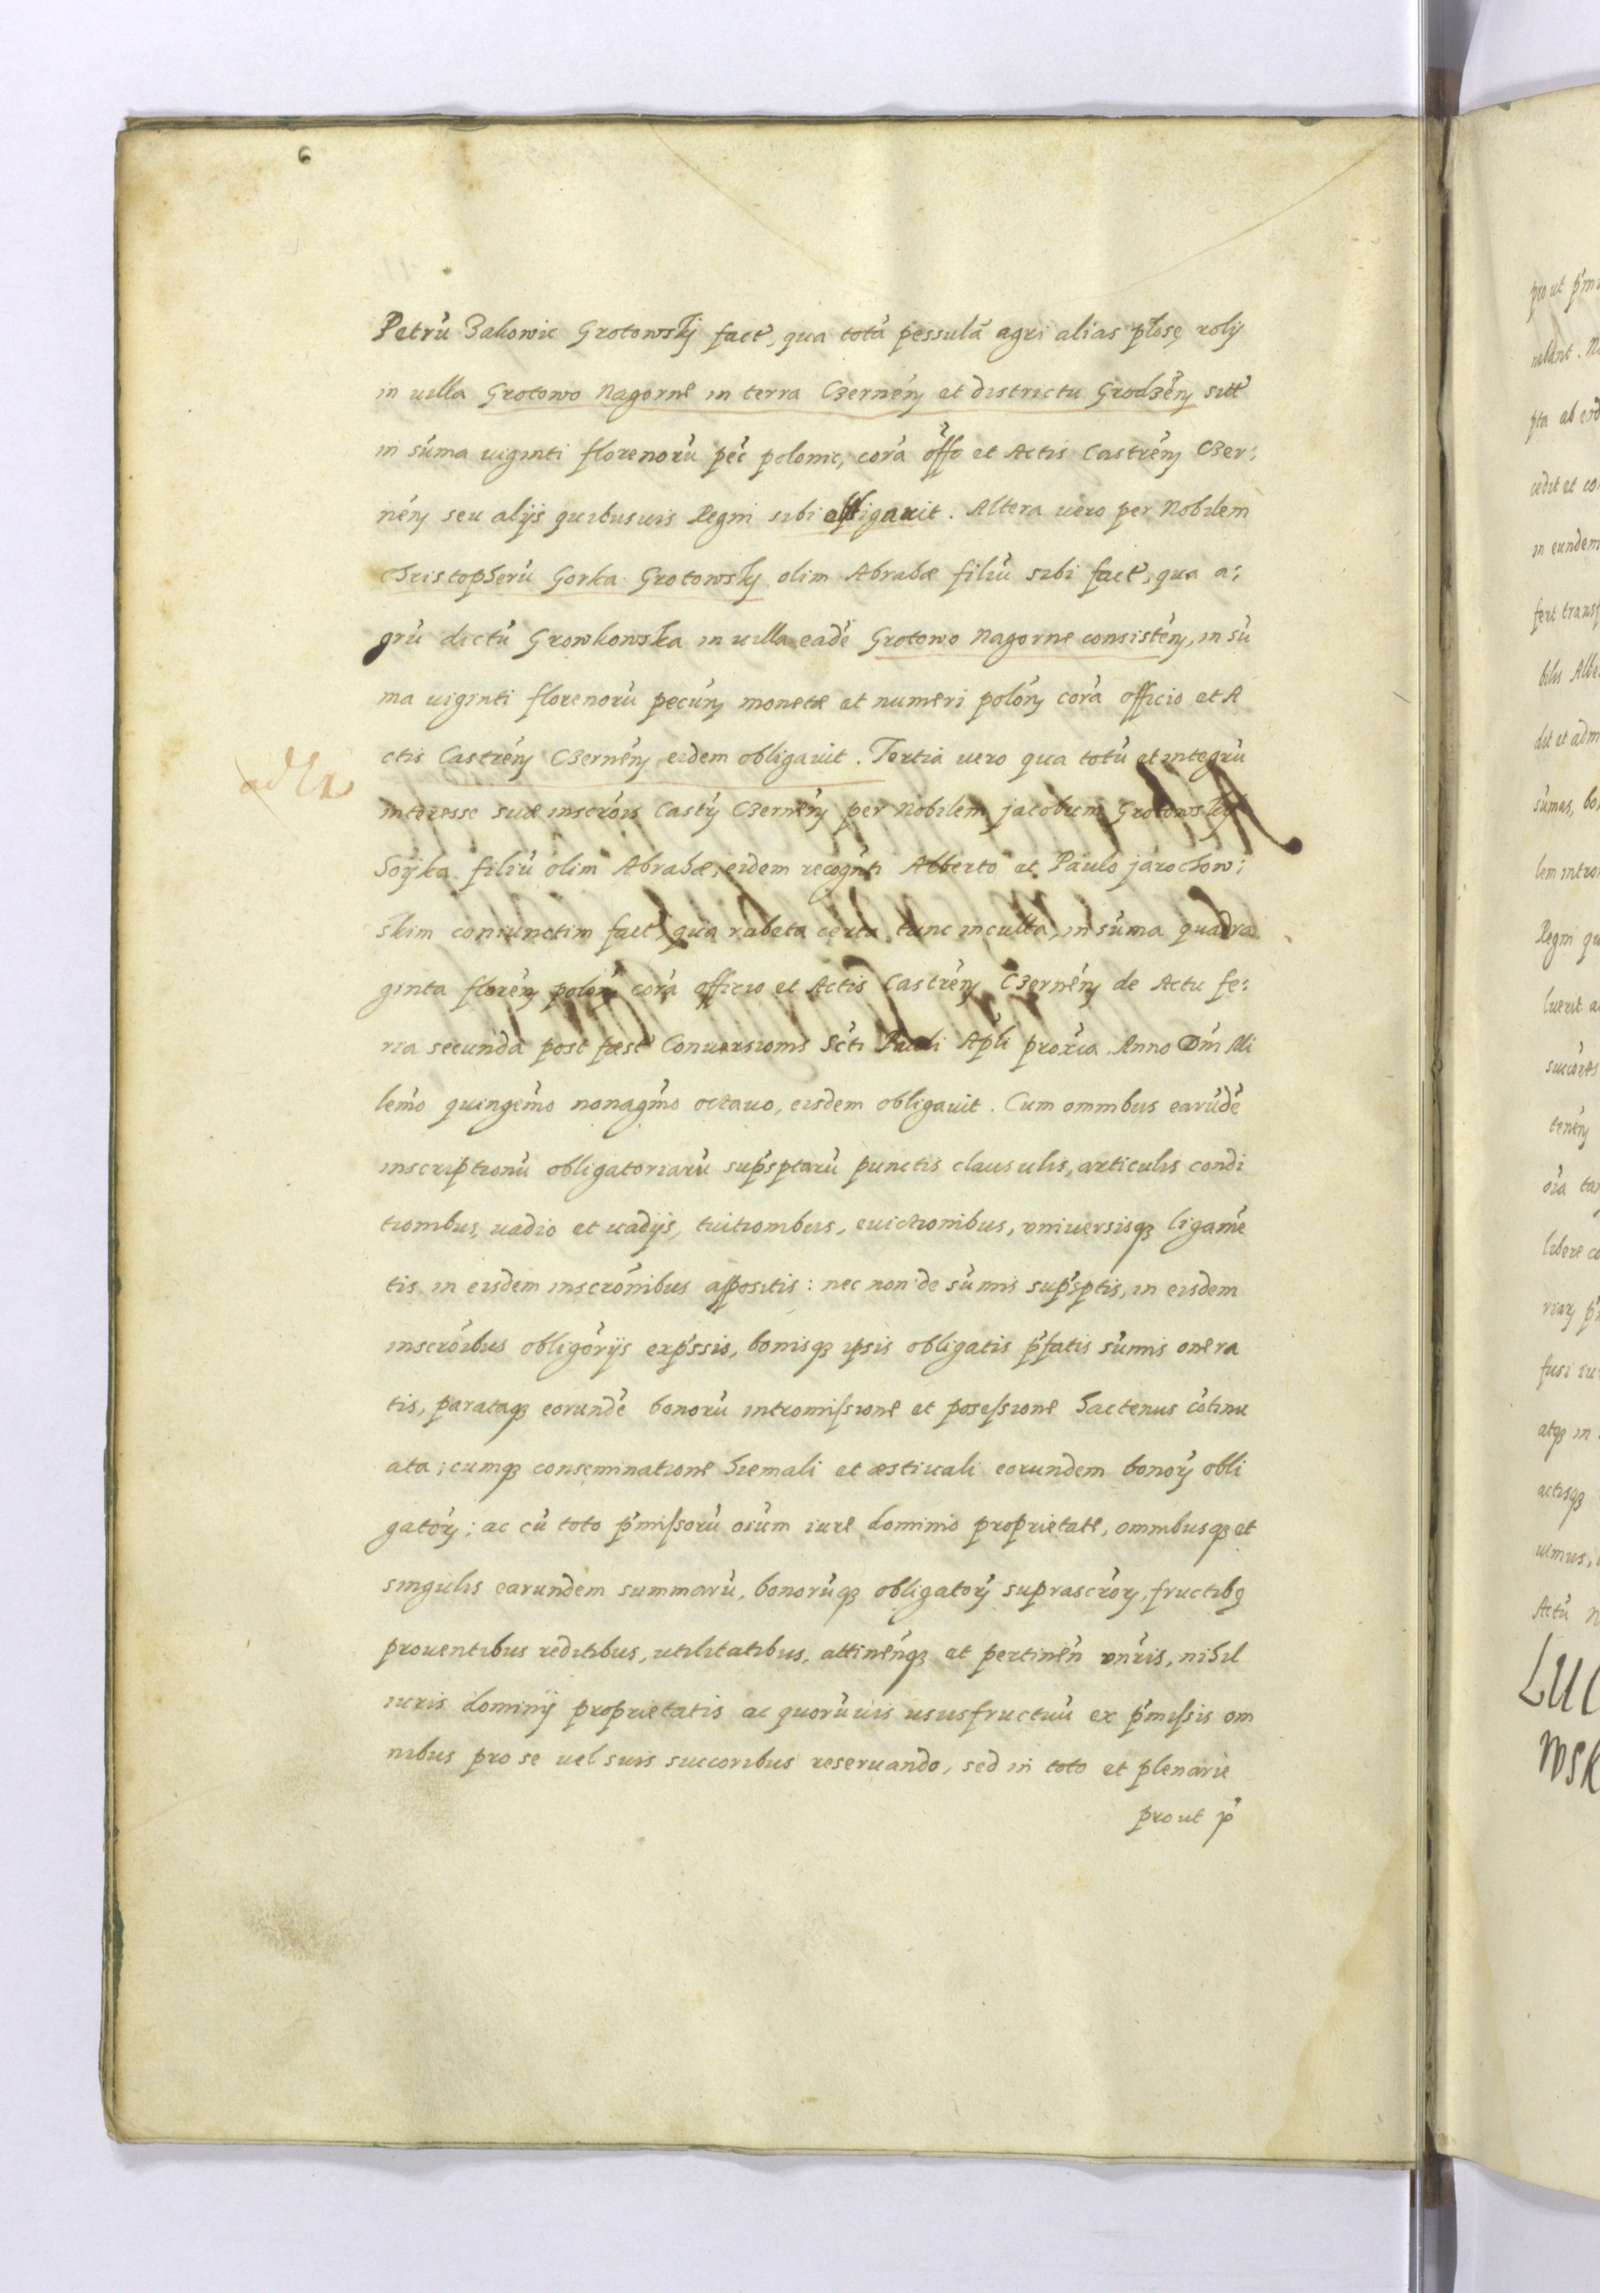 6
Petrũ Zakowic Grotowskij fact̃, qua totã pessulã agri alias płosę rolij
in uilla Grotowo Nagorne in terra Czernẽn et districtu Grodzẽn sitt̃
in sũma uiginti florenorũ pẽc polonic, corã offo et Actis Castrẽn Czer;
nẽn seu alijs quibusuis Regni sibi obligauit. Altera uero per Nobilem
Christopherũ Gorka Grotowskij olim Abrahæ filiũ sibi fact̃, qua a;
grũ dictũ Growkowska in uilla eadẽ Grotowo Nagorne consistẽn, in sũ
ma uiginti florenorũ pecũn monetæ et numeri polõn corã officio et A
ctis Castrẽn Czernẽn eidem obligauit. Tertia uero qua totũ et integrũ
interesse suæ inscrõis Castr̃ Czernẽn per Nobilem jacobum Grotowskij
Soyka filiũ olim Abrahæ, eidem recogñti Alberto et Paulo jarochow;
skim coniunctim fact̃, qua rubeta certa tunc inculta, in sũma quadra
ginta florẽn polõn corã officio et Actis Castrẽn Czernẽn de Actu fe;
ria secunda post fæst̃ Conuersionis Sc̃ti Pauli Apl̃i proxĩa. Anno Dm̃ Mi
lẽmo quingẽmo nonagm̃o octauo, eisdem obligauit. Cum omnibus earũdẽ
inscriptionũ obligatoriarũ sup̃sptarũ punctis clausulis, articulis condi
tionibus, uadio et uadijs, tuitionibus, euictionibus, vniuersisq₃ ligamẽ
tis in eisdem inscrõnibus appositis: nec non de sũmis sup̃sptis, in eisdem
inscrõibus obligõrijs exp̃ssis, bonisq₃ ipsis obligatis p̃fatis sũmis onera
tis, parataq₃ eorundẽ bonorũ intromissione et posessione hactenus cõtinu
ata; cumq₃ conseminatione hiemali et æstiuali eorundem bonor̃ obli
gator̃; ac cũ toto p̃missorũ oĩum iure dominio proprietate, omnibusq₃ et
singulis earundem summarũ, bonorũq₃ obligator̃ suprascr̃or, fructibq
prouentibus reditibus, utilitatibus, attinẽnq₃ et pertinẽn vnĩris, nihil
iuris dominij proprietatis ac quorũuis ususfructuũ ex p̃missis om
nibus pro se uel suis succoribus reseruando, sed in toto et plenarie
prout p̃